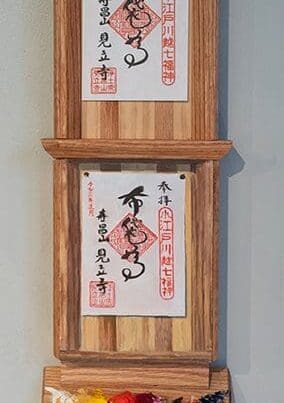 江戸川越七福神
袋尊
寿昌山 見立寺
奉拝
小江戸川越七福神
布袋尊
寿昌山 見立寺